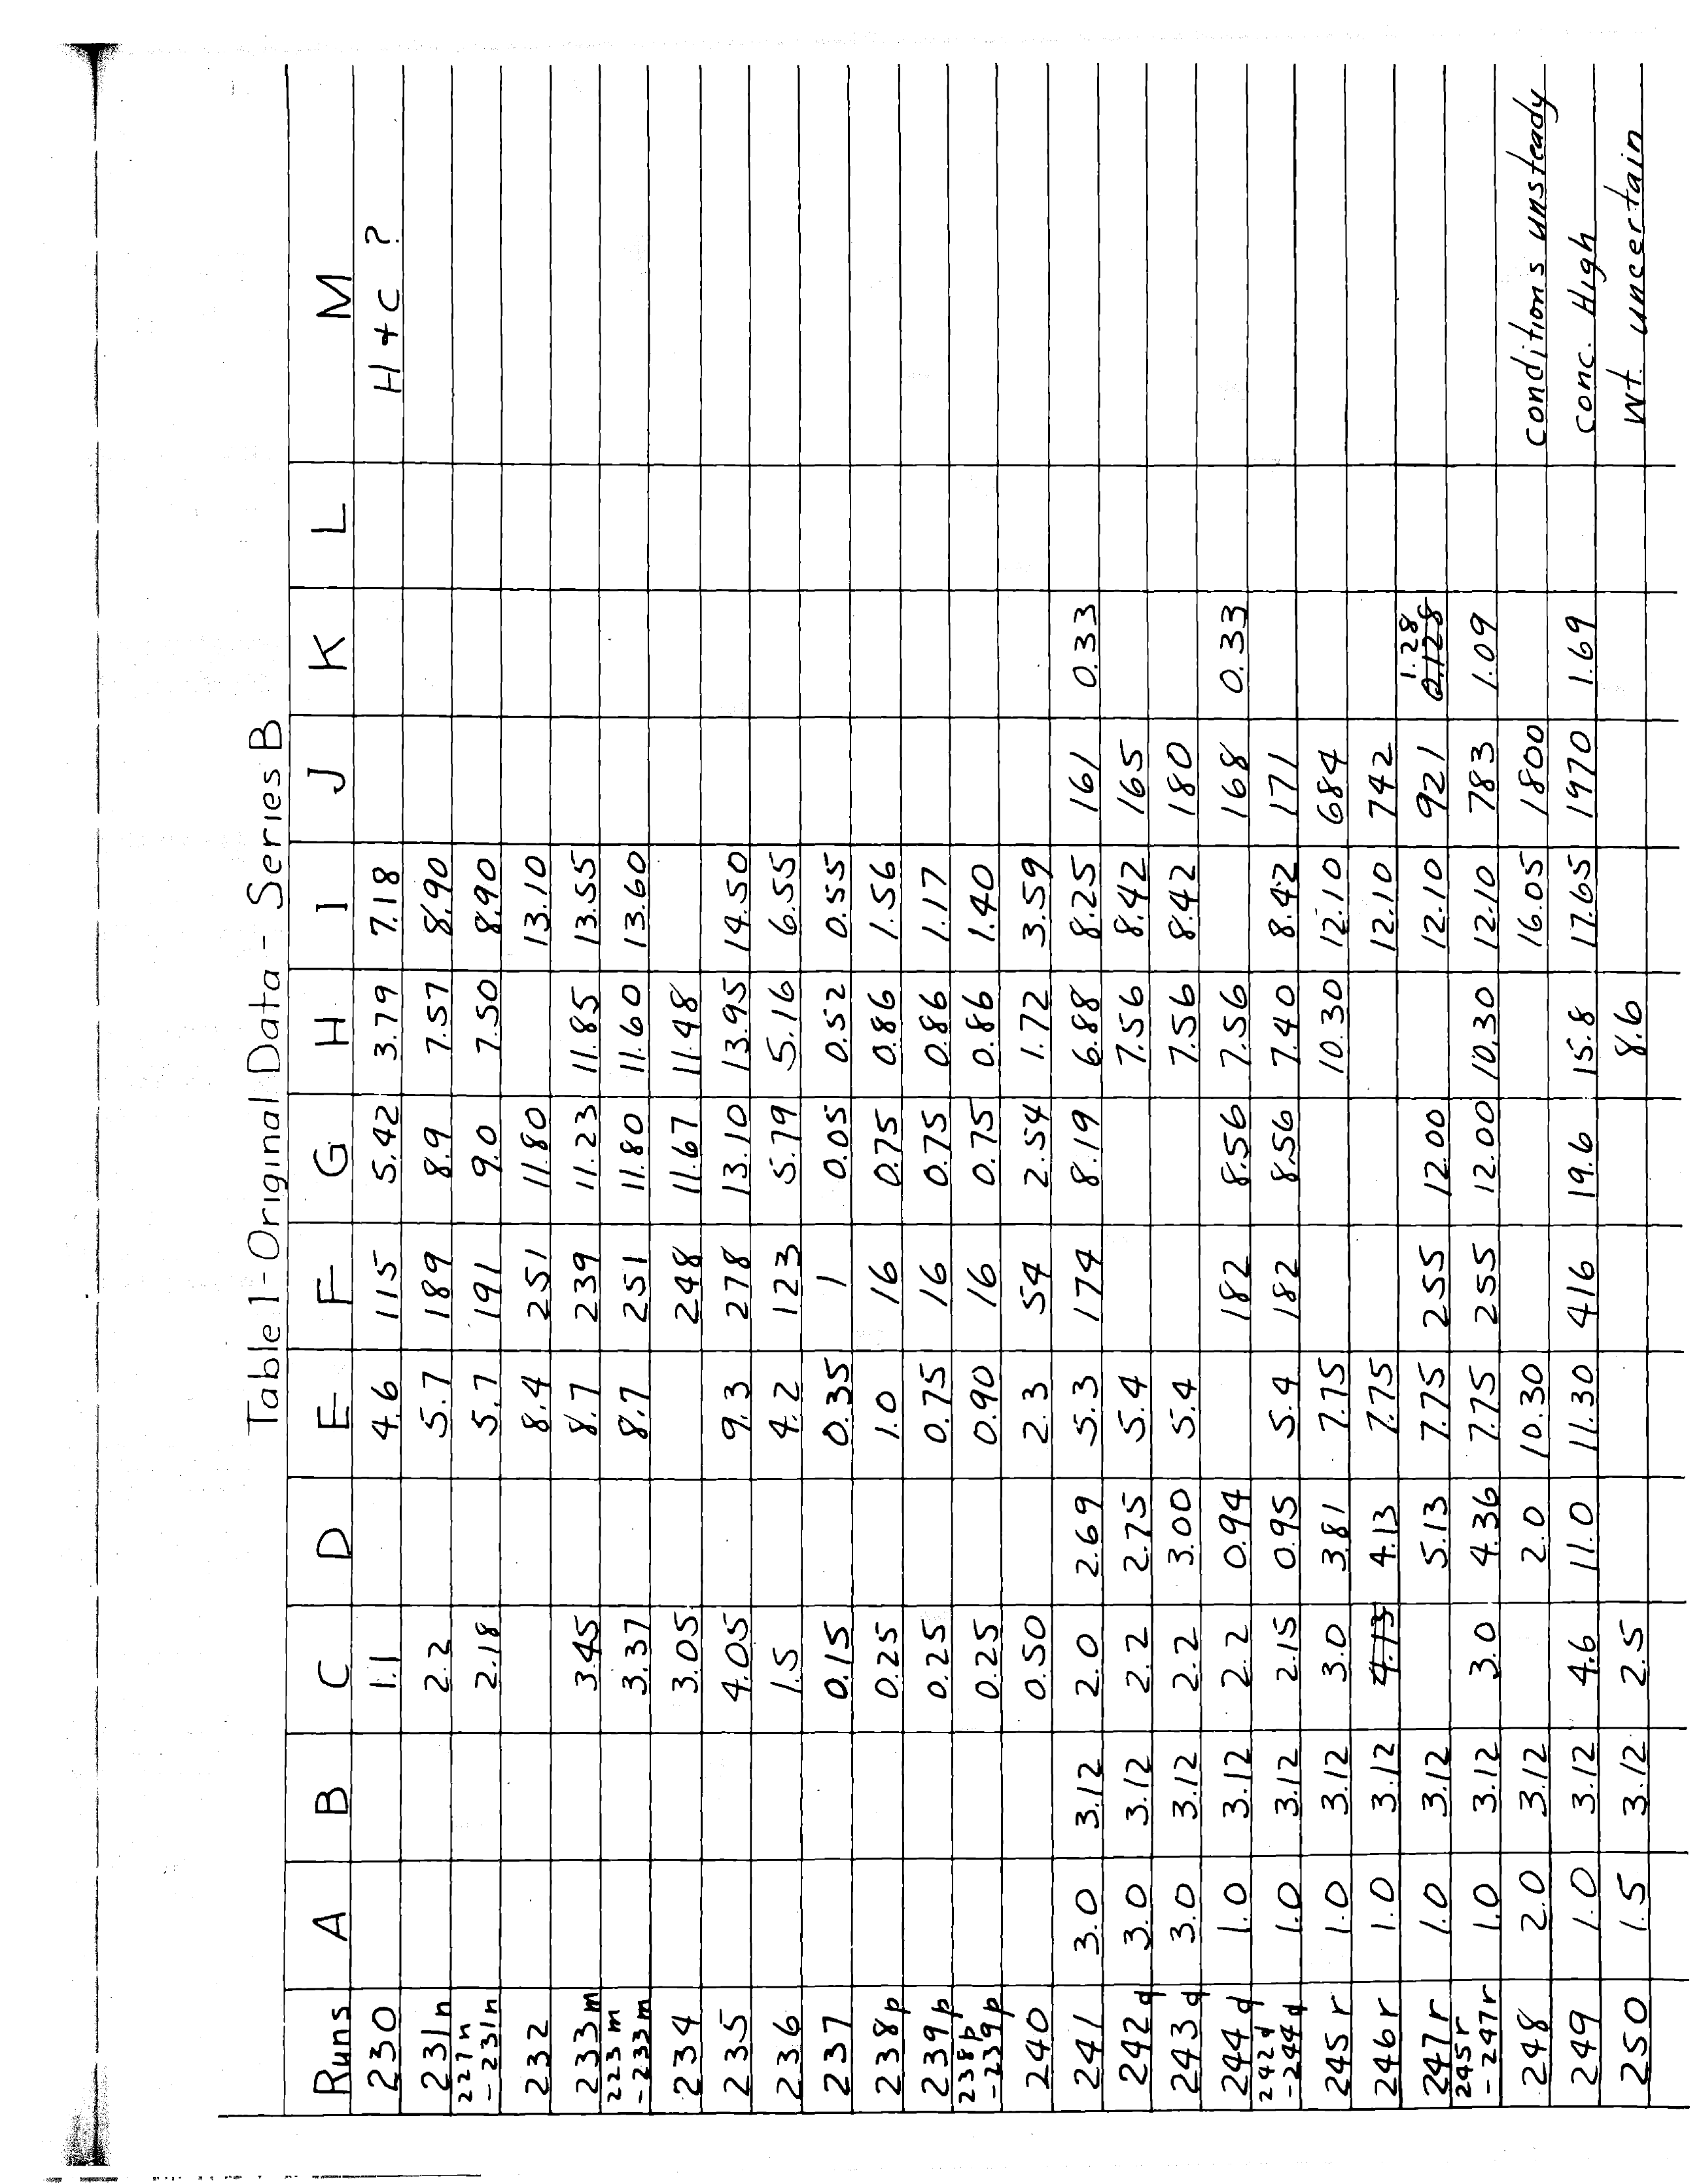 Table 1 - Original Data - Series B
Runs A B C D E F G H I J K L M
230 1.1 4.6 115 5.42 3.79 7.18 H + C ?
231n 2.2 5.7 189 8.9 7.57 8.90
227n - 231n 2.18 5.7 191 9.0 7.50 8.90
232 8.4 251 11.80 13.10
233m 3.45 8.7 239 11.23 11.85 13.55
223m - 233m 3.37 8.7 251 11.80 11.60 13.60
234 3.05 248 11.67 11.48
235 4.05 9.3 278 13.10 13.95 14.50
236 1.5 4.2 123 5.79 5.16 6.55
237 0.15 0.35 1 0.05 0.52 0.55
238p 0.25 1.0 16 0.75 0.86 1.56
239p 0.25 0.75 16 0.75 0.86 1.17
238p - 239p 0.25 0.90 16 0.75 0.86 1.40
240 0.50 2.3 54 2.54 1.72 3.59
241 3.0 3.12 2.0 2.69 5.3 174 8.19 6.88 8.25 161 0.33
242q 3.0 3.12 2.2 2.75 5.4 7.56 8.42 165
243q 3.0 3.12 2.2 3.00 5.4 7.56 8.42 180
244q 1.0 3.12 2.2 0.94 182 8.56 7.56 168 0.33
242q - 244q 1.0 3.12 2.15 0.95 5.4 182 8.56 7.40 8.42 171
245r 1.0 3.12 3.0 3.81 7.75 10.30 12.10 684
246r 1.0 3.12 4.13 4.13 7.75 12.10 742
247r 1.0 3.12 5.13 7.75 255 12.00 12.10 921 1.28 0.128
245r - 247r 1.0 3.12 3.0 4.36 7.75 255 12.00 10.30 12.10 783 1.09
248 2.0 3.12 2.0 10.30 16.05 1800 conditions unsteady
249 1.0 3.12 4.6 11.0 11.30 416 19.6 15.8 17.65 1970 1.69 conc. High
250 1.5 3.12 2.5 8.6 wt. uncertain